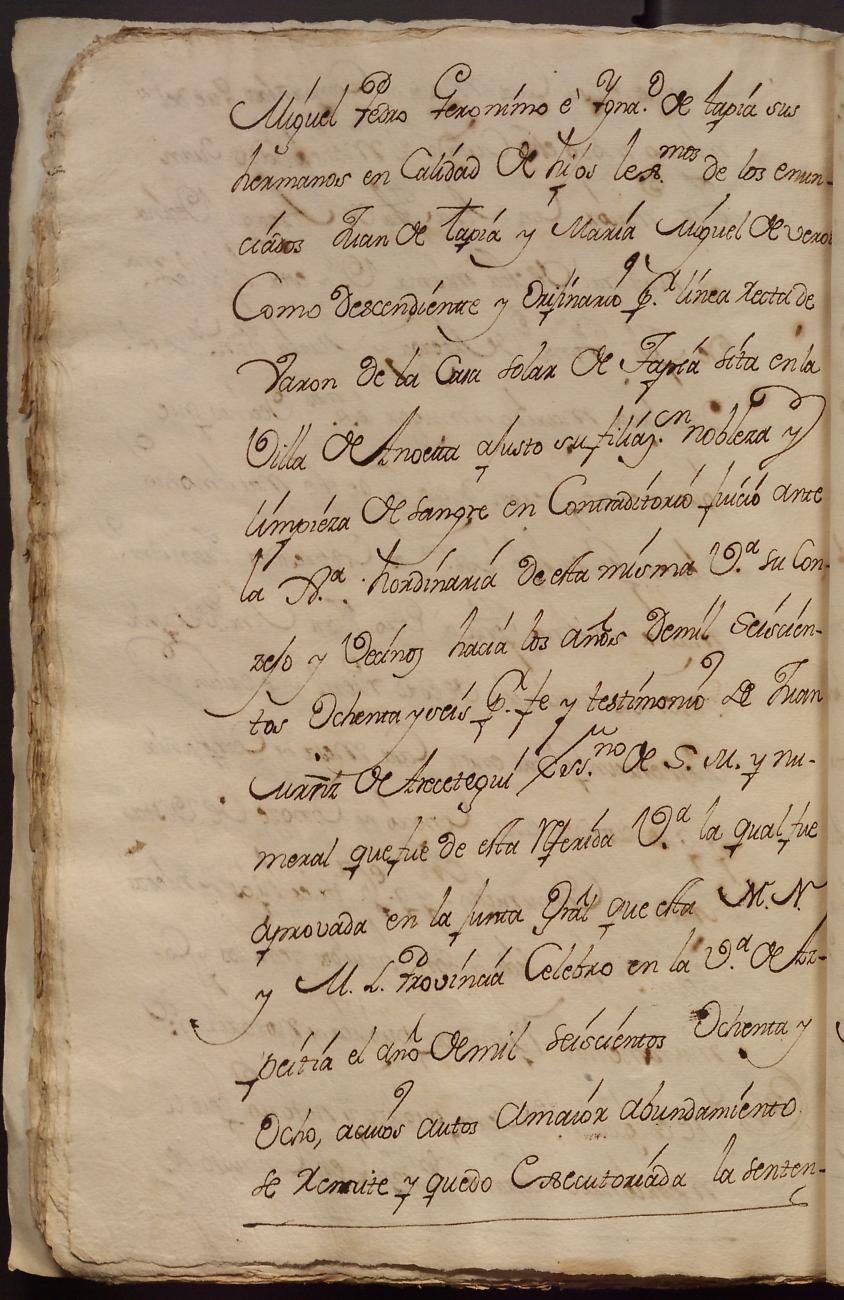 Miguel Pedro Geronimo è Ygna.º de tapia sus
hermanos en Calidad de hijos lex.mos de los enun-
ciados Juan de tapia y Maria Miguel de vero
Como Descendiente y Orijinario p.r linea recta de
Varon de la Casa solar de Tapia sita en la
Villa de Anoeta ajusto su filiaz.on nobleza y
limpieza de sangre en Contraditorio juicio ante
la Jª. hordinaria de esta misma V.ª su Con-
zejo y Vecinos hacia los años de mil seiscien-
tos Ochenta y seis p.r fe y testimonio de Juan
de Arecetegui Ess.no de S. M. y nu-
meral que fue de esta referida V.ª la qual fue
aprovada en la Junta Gral que esta M. N.
y M. L. Provincia Celebro en la V.ª de Az-
peitia el año de mil seiscientos Ochenta y
Ocho, acuios autos a maior abundamiento
se remite y quedo Executoriada la senten-